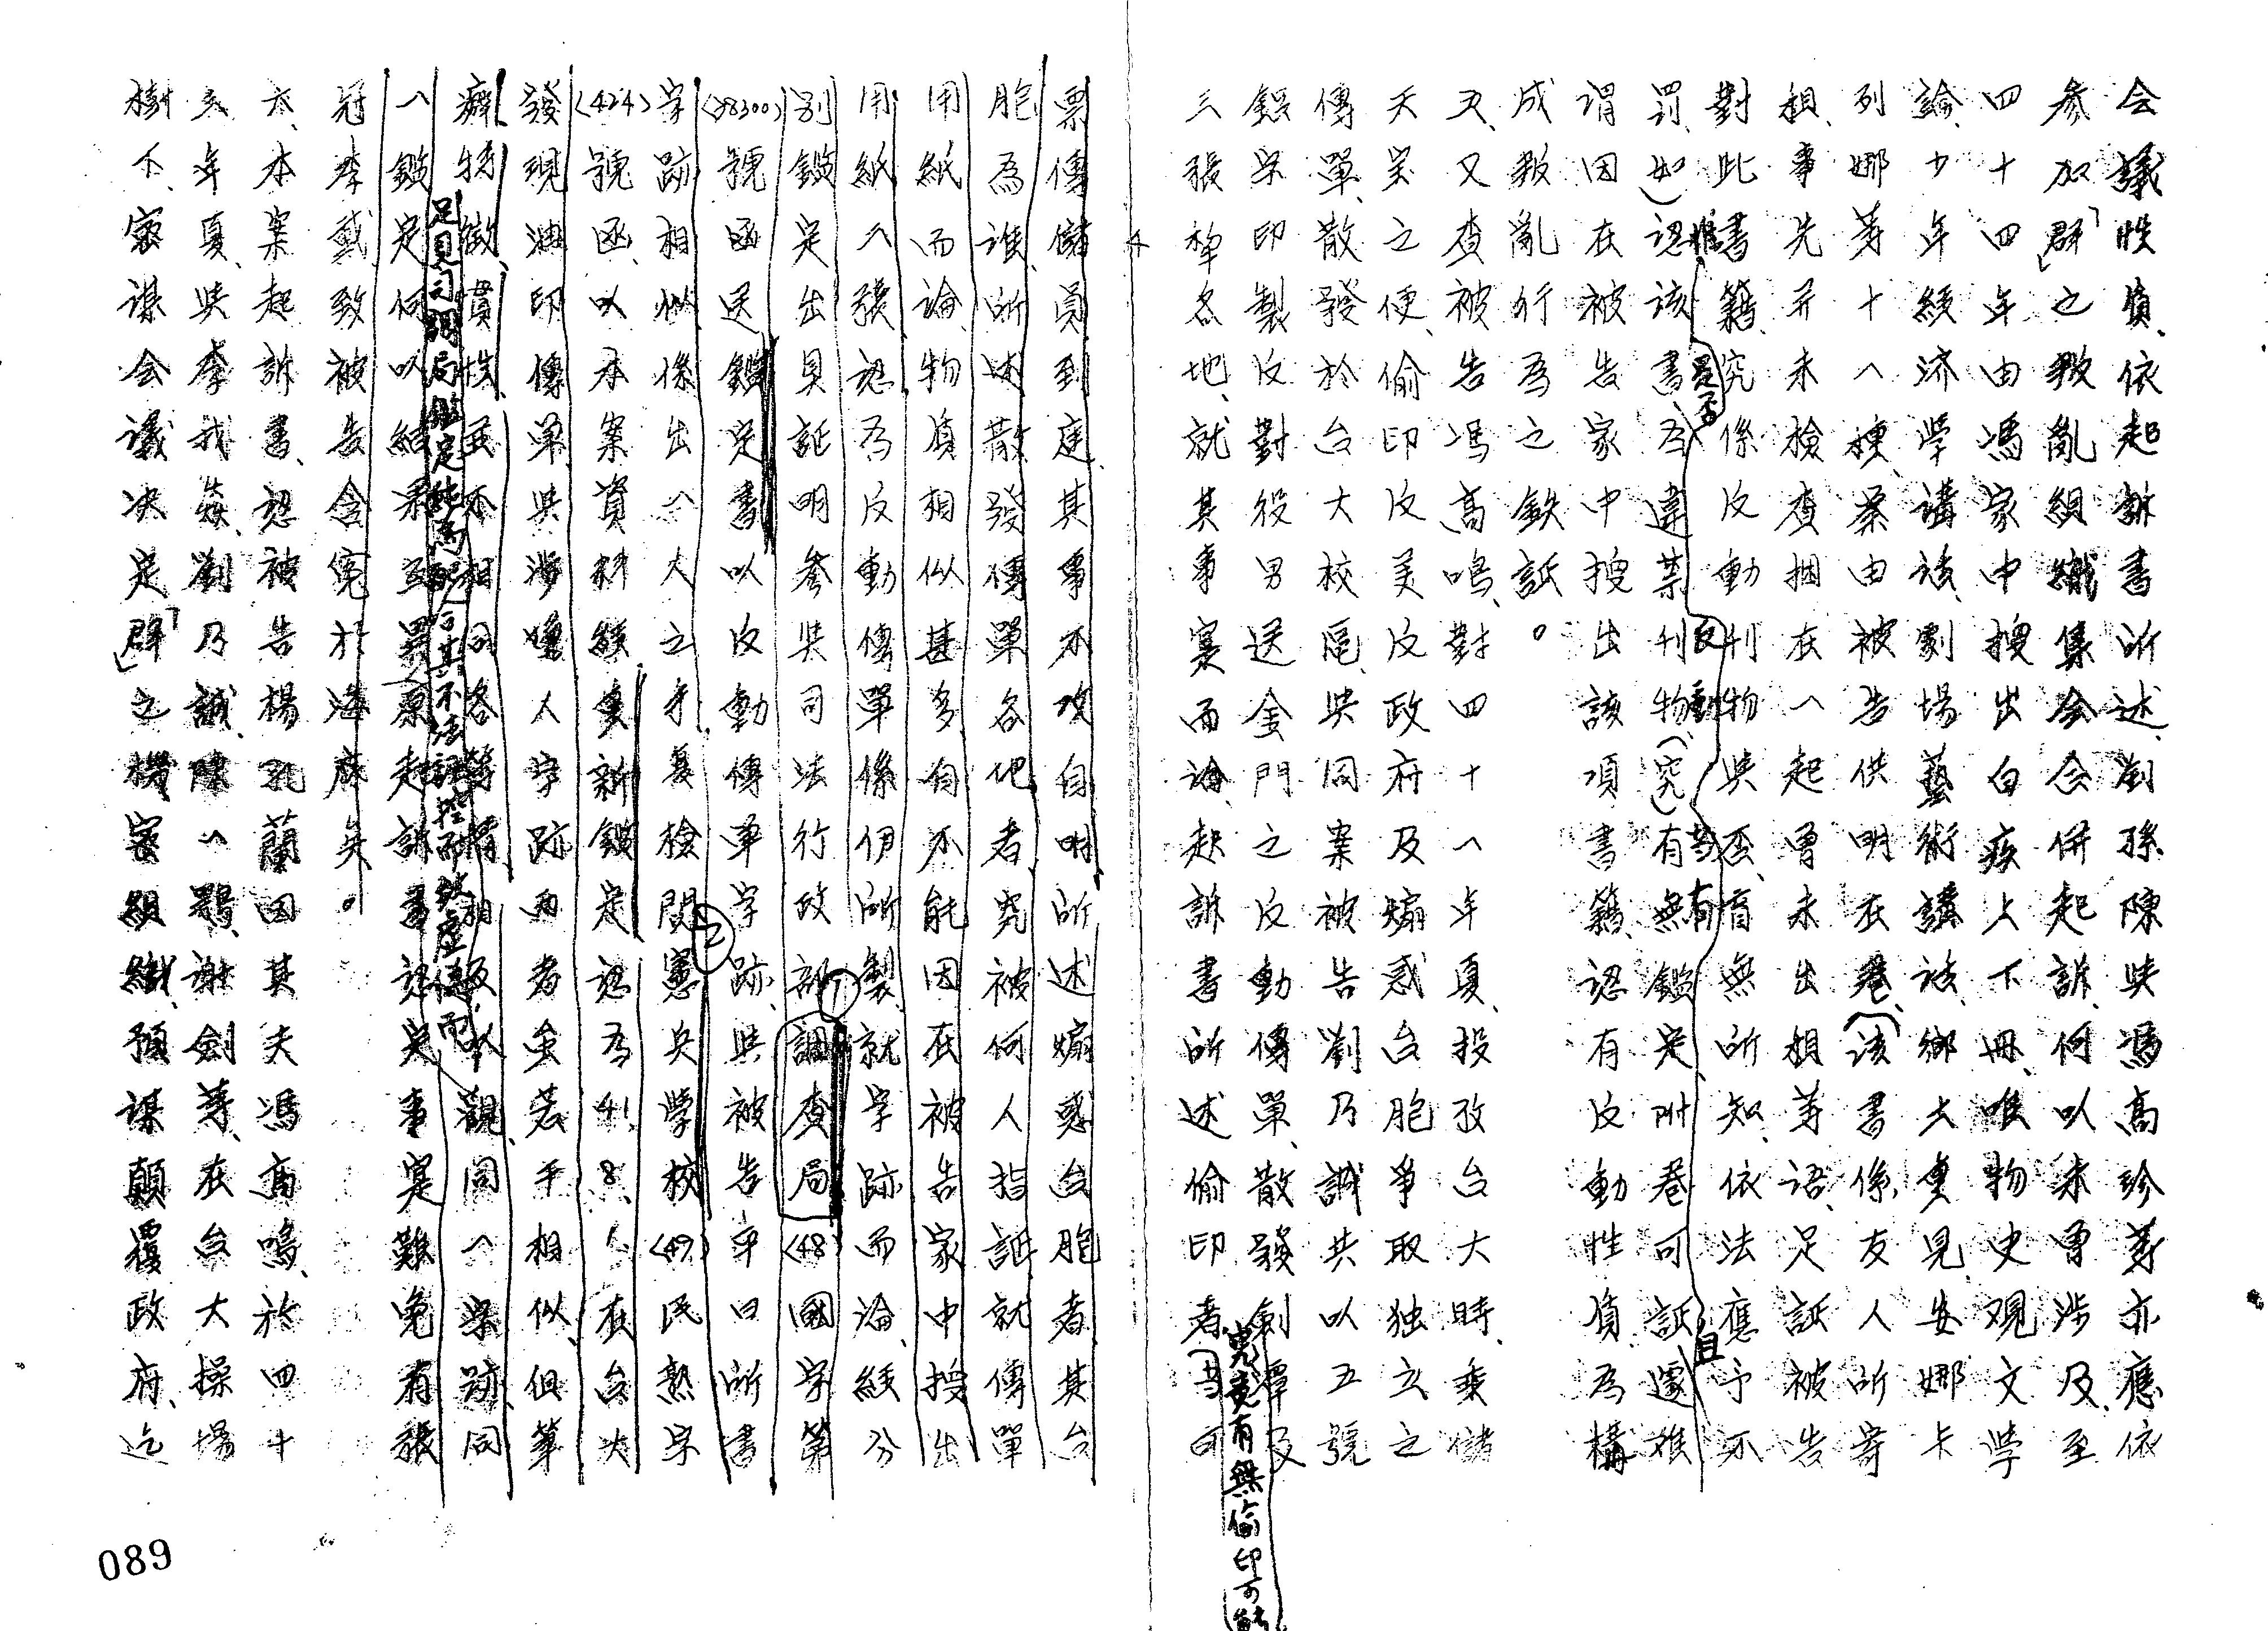 会議性質、依起訴書所述、劉孫陳與馮高珍等亦應依
參加「群」之叛亂組織集会合併起訴、何以未曾涉及、至
四十四年由馮家中搜出白痰上下冊、唯物史观文学
論、少年經济学講話、劇場藝術講話、鄉土重見、安娜卡
列娜等十八種、案由被告供明在卷、(該書係友人所寄
相、事先并未檢查捆在一起曾未出相等語、足証被告
對此書籍、究係反動刊物與否、有無所知、依法應予不
罰、如(認該書為違禁刊物(究)有無鑑定附卷可証、遽推
惟
是否
反動
若有
且
謂因在被告家中搜出該項書籍、認有反動性質為構
成叛亂行為之鉄証。
五、又查被告馮高鳴、對四十八年夏、投攷台大時、乘儲
天宝之便、偷印反美反政府及煽惑台胞爭取独立之
傳單、散發於台大校區與同案被告劉乃誠共以五號
鋁字印製反對役男送金門之反動傳單、散發劍潭及
三張犂各地、就其事實而論、起訴書所述偷印者(
究竟有無偷印可能
票傳儲員到庭、其事不攻自明、所述煽惑台胞者其台
胞為誰、所述散發傳單各地者究被何人指証、就傳單
用紙而論、物質相似甚多、自不能因在被告家中搜出
用紙八張、認為反動傳單係伊所製、就字跡而論、經分
別鑑定出具証明參與司法行政部調查局(48)國字第
①
(98300)號函送鑑定書、以反動傳單字跡、與被告平日所書
字跡相似、係出一人之手、复檢閱憲兵學校(49)民熟字
②
(424)號函以本案資料經重新鑑定、認為41 8、1、在台大
發現油印傳單與涉嫌人字跡兩者虽若干相似、但筆
癖特徵、慣性並不相同、各等情、相反以觀、同一字跡、同
足見司調局鑑定純為配合其不法誣控而欲虛偽而
一鑑定、何以結果互異、原起訴書認定事实、難免有張
冠李戴致被告含冤於海底矣。
六、本案起訴書、認被告楊乳蘭因其夫馮高鳴、於四十
六年夏、與李我焱、劉乃誠、陳一鶚、謝劍等、在台大操場
樹下、密謀会議決定「群」之機密組織、預謀顛覆政府、迄
089